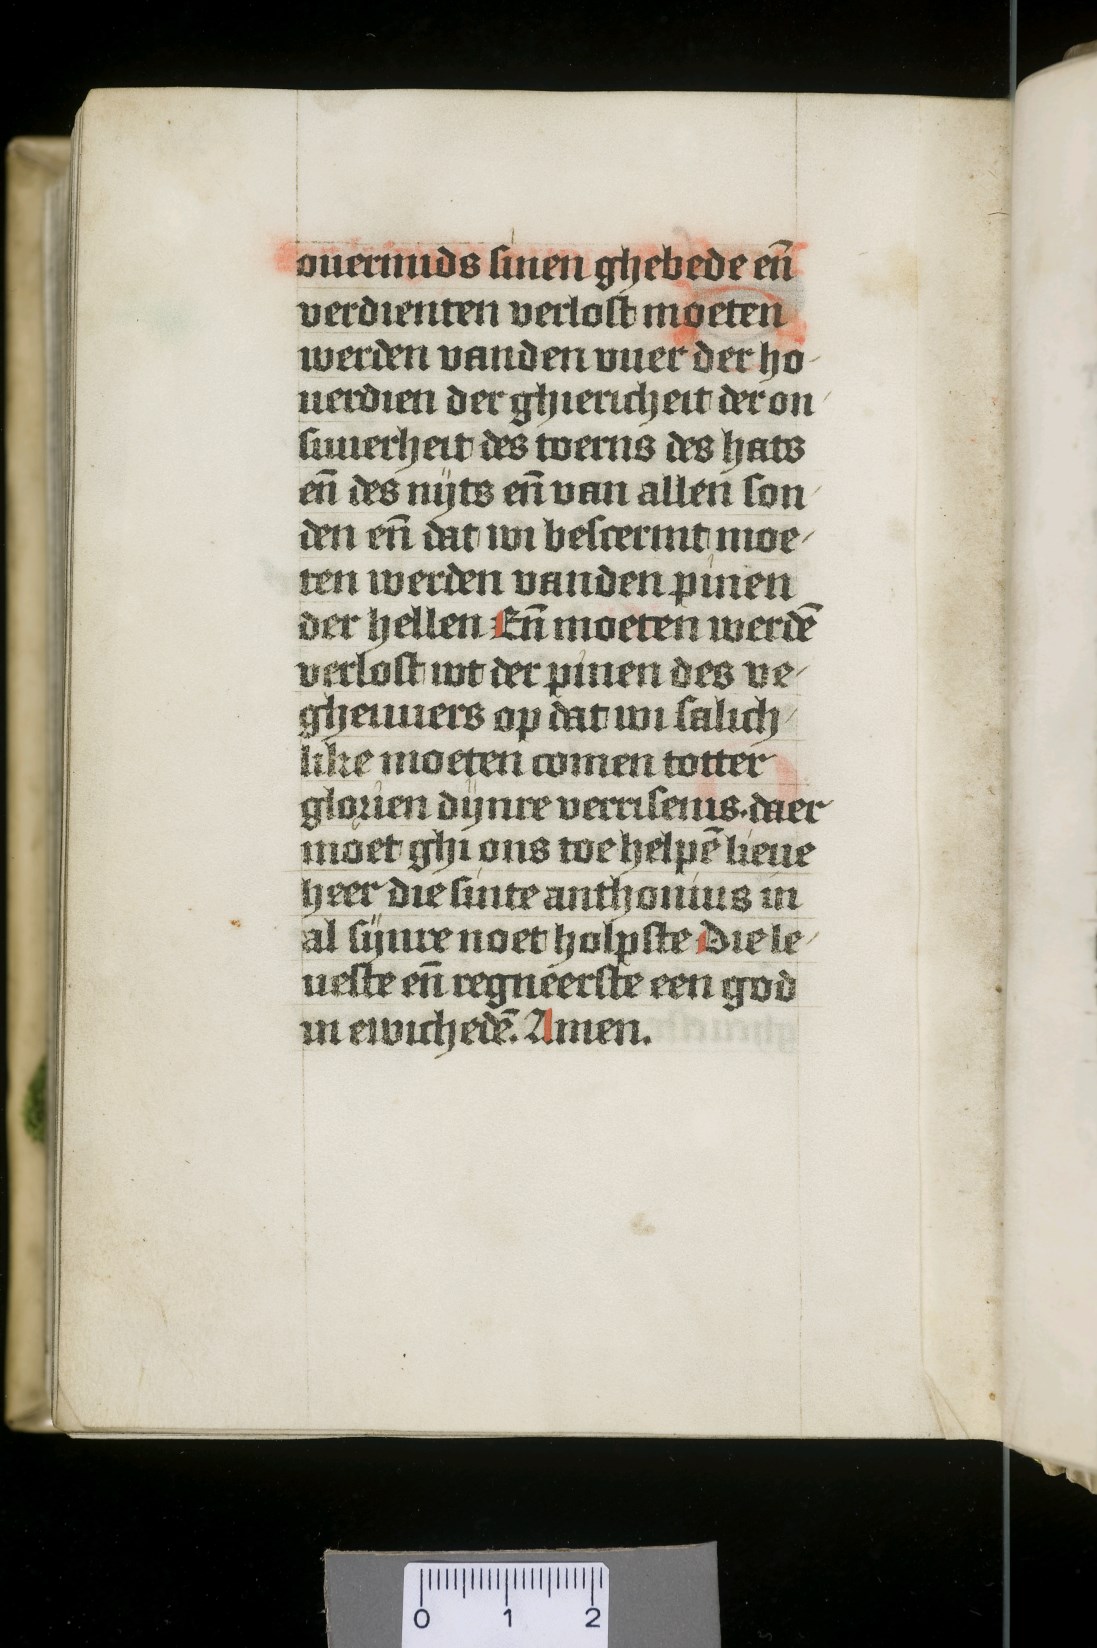 ouermids sinen ghebede en̄
verdienten verlost moeten
werden vanden vuer der ho-
uerdien der ghiericheit der on-
suuerheit des toerns des hats
en̄ des nijts en̄ van allen son-
den en̄ dat wi bescermt moe-
ten werden vanden pinen
der hellen En̄ moeten werdē
verlost wt der pinen des ve-
gheuuers op dat wi salich-
like moeten comen totter
glorien dijnre verrisenis. daer
moet ghi ons toe helpē lieue
heer die sinte anthonius in
al sijnre noet holpste Die le-
ueste en̄ regneerste een god
in ewichedē. Amen.
0 1 2